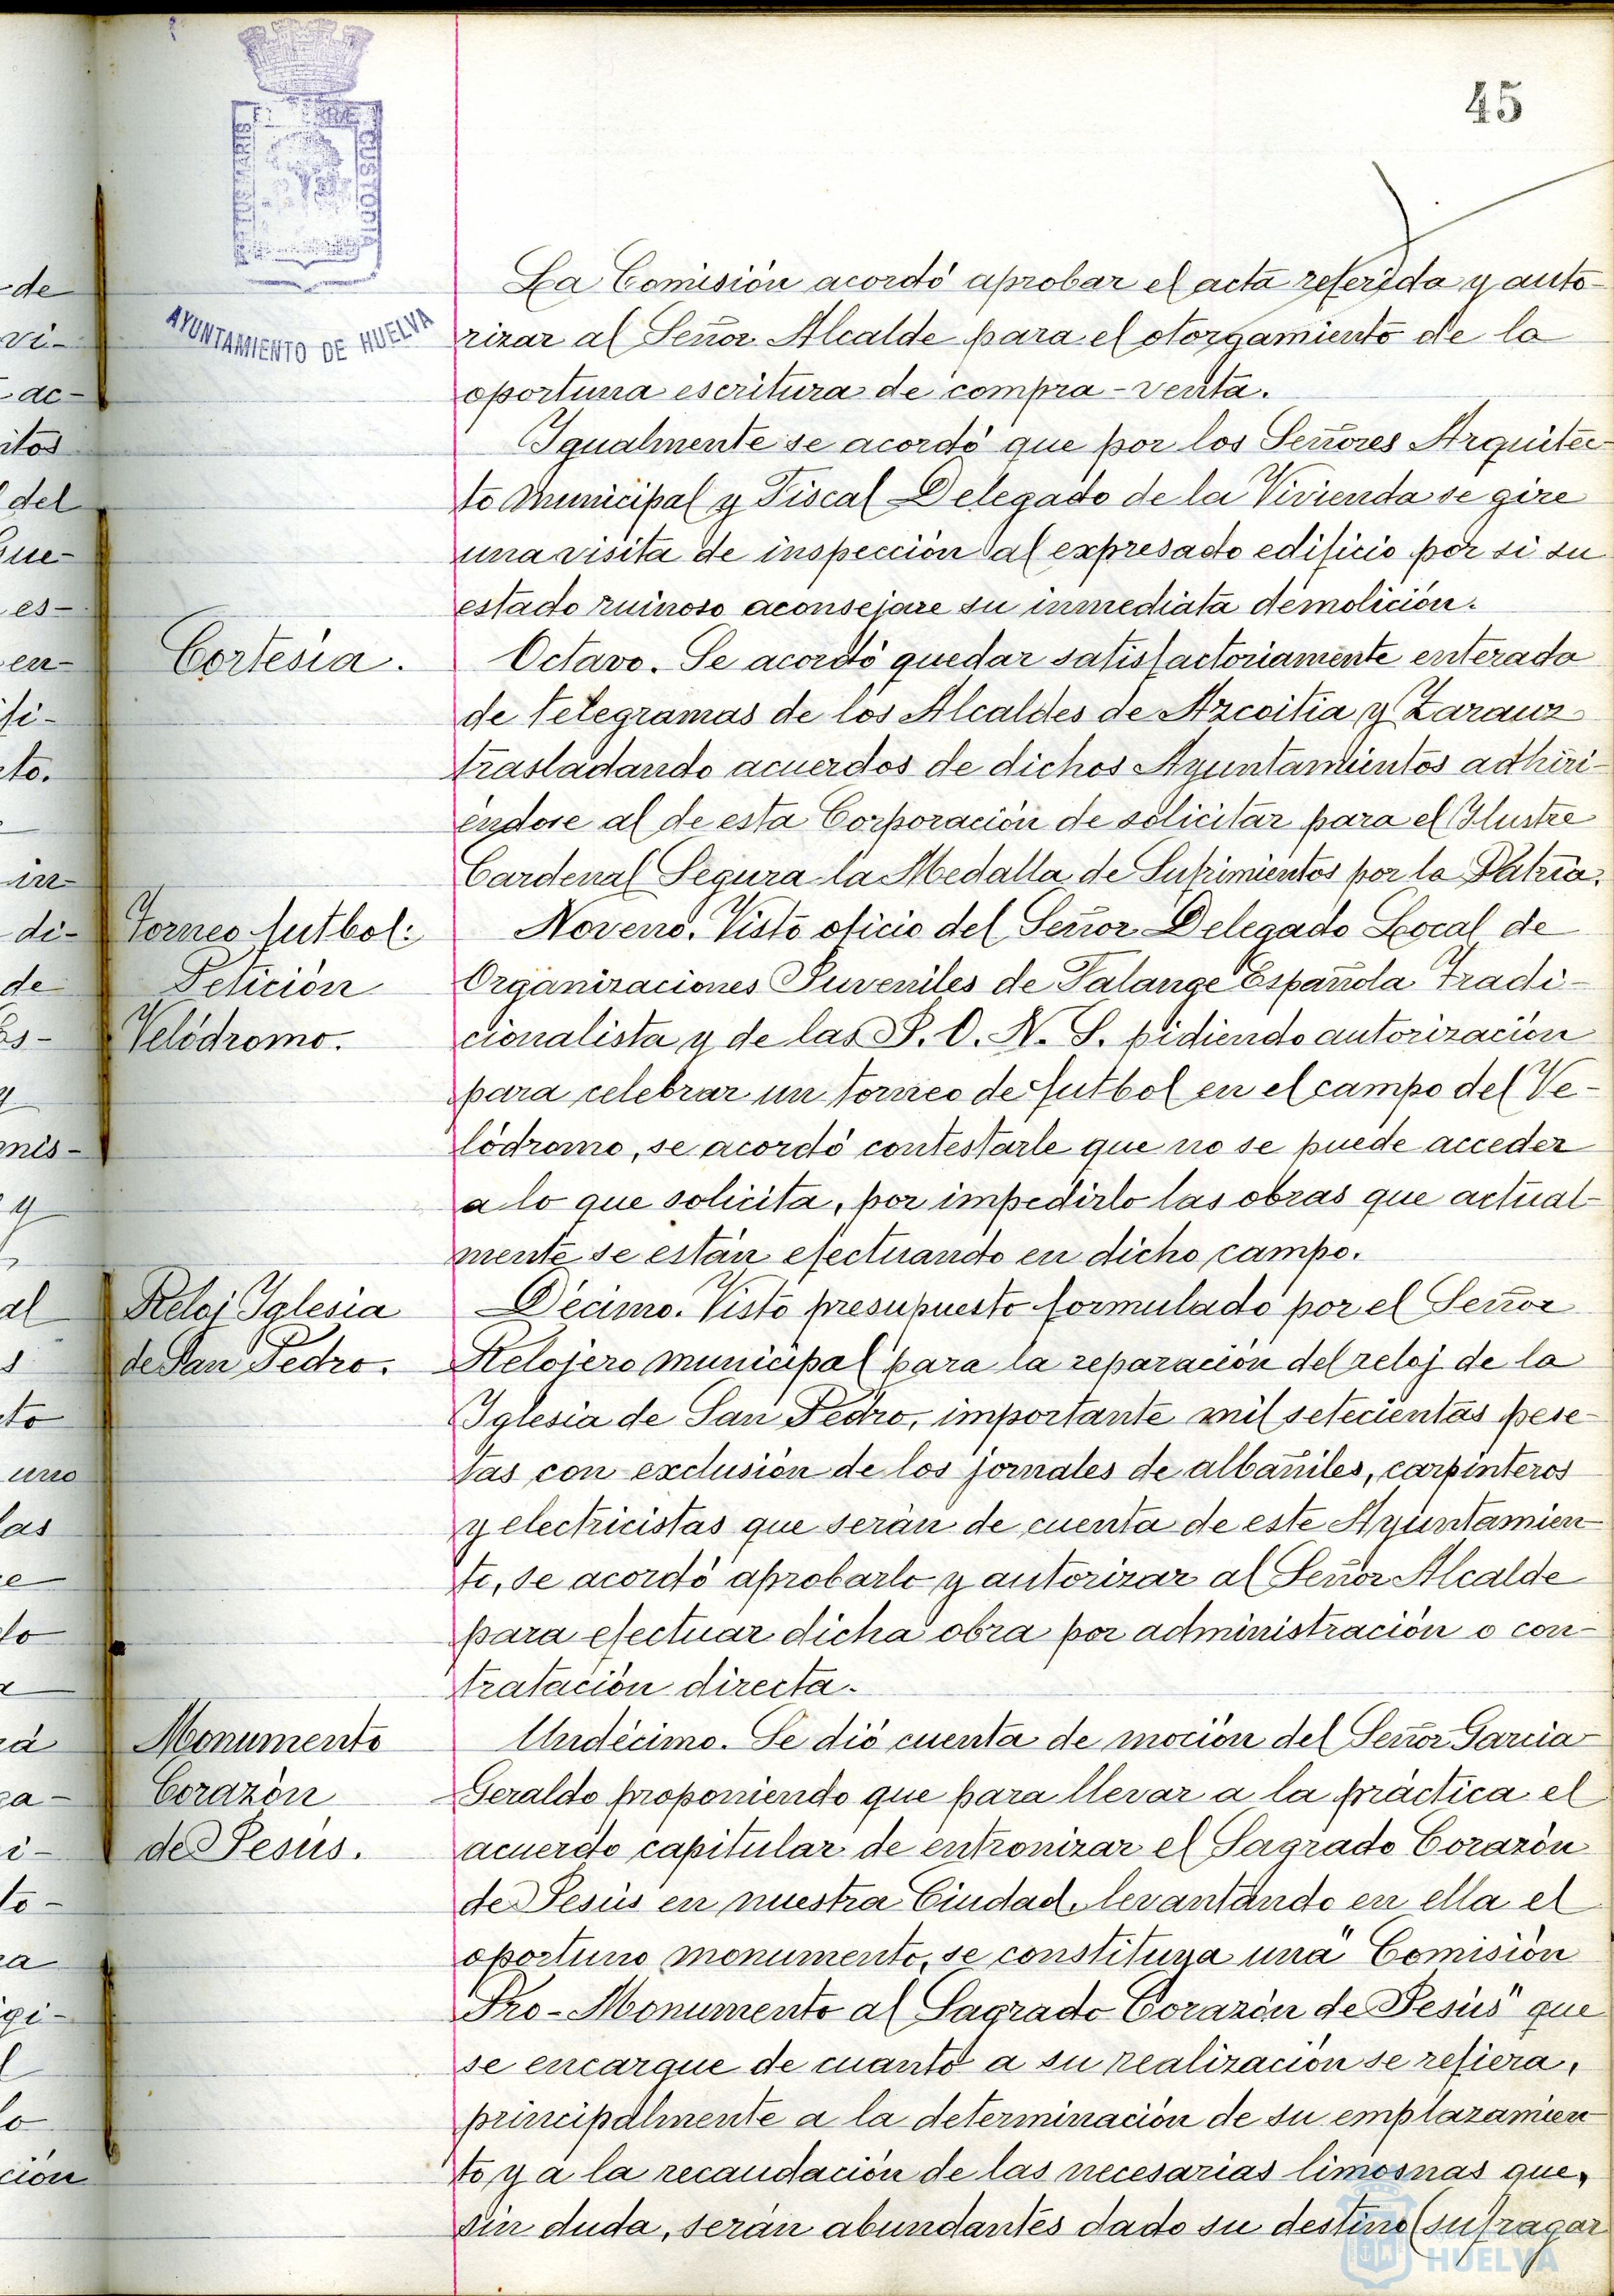 45
AYUNTAMIENTO DE HUELVA
CUSTODIA
La Comisión acordó aprobar el acta referida y auto-
rizar al Señor Alcalde para el otorgamiento de la
oportuna escritura de compra-venta.
Igualmente se acordó que por los Señores Arquitec-
to Municipal y Fiscal Delegado de la Vivienda se gire
una visita de inspección al expresado edificio por si su
estado ruinoso aconsejare su inmediata demolición.
Cortesía.
Octavo. Se acordó quedar satisfactoriamente enterada
de telegramas de los Alcaldes de Azcoitia y Zarauz
trasladando acuerdos de dichos Ayuntamientos adhiri-
éndose al de esta Corporación de solicitar para el Ilustre
Cardenal Segura la Medalla de Sufrimientos por la Patria.
Torneo futbol:
Petición
Velódromo.
Noveno. Visto oficio del Señor Delegado Local de
Organizaciones Juveniles de Falange Española Tradi-
cionalista y de las J. O. N. S. pidiendo autorización
para celebrar un torneo de futbol en el campo del Ve-
lódromo, se acordó contestarle que no se puede acceder
a lo que solicita, por impedirlo las obras que actual-
mente se están efectuando en dicho campo.
Reloj Iglesia
de San Pedro.
Décimo. Visto presupuesto formulado por el Señor
Relojero Municipal para la reparación del reloj de la
Iglesia de San Pedro, importante mil setecientas pese-
tas con exclusión de los jornales de albañiles, carpinteros
y electricistas que serán de cuenta de este Ayuntamien-
to, se acordó aprobarlo y autorizar al Señor Alcalde
para efectuar dicha obra por administración o con-
tratación directa.
Monumento
Corazón
de Jesús.
Undécimo. Se dió cuenta de moción del Señor Garcia
Geraldo proponiendo que para llevar a la práctica el
acuerdo capitular de entronizar el Sagrado Corazón
de Jesús en nuestra Ciudad, levantando en ella el
oportuno monumento, se constituya una "Comisión
Pro-Monumento al Sagrado Corazón de Jesús" que
se encargue de cuanto a su realización se refiera,
principalmente a la determinación de su emplazamien-
to y a la recaudación de las necesarias limosnas que,
sin duda, serán abundantes dado su destino (sufragar
HUELVA